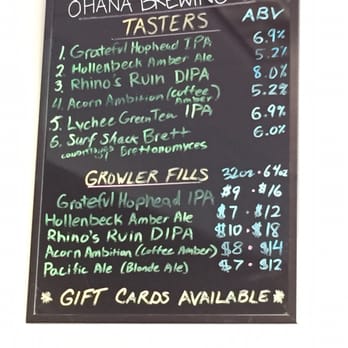 OHANA BREWING
TASTERS ABV
1. Grateful Hophead IPA 6.9%
2 Hollenbeck Amber Ale 5.2%
3. Rhino's Ruin DIPA 8.0%
4. Acorn Ambition (Coffee Amber) 5.2%
5. Lychee Green Tea IPA 6.9%
6. Surf Shack Brett 6.0%
Brettanomyces
GROWLER FILLS 32oz • 64oz
Grateful Hophead IPA $9 • $16
Hollenbeck Amber Ale $7 • $12
Rhino's Ruin DIPA $10 • $18
Acorn Ambition (Coffee Amber) $8 • $14
Pacific Ale (Blonde Ale) $7 • $12
* GIFT CARDS AVAILABLE *